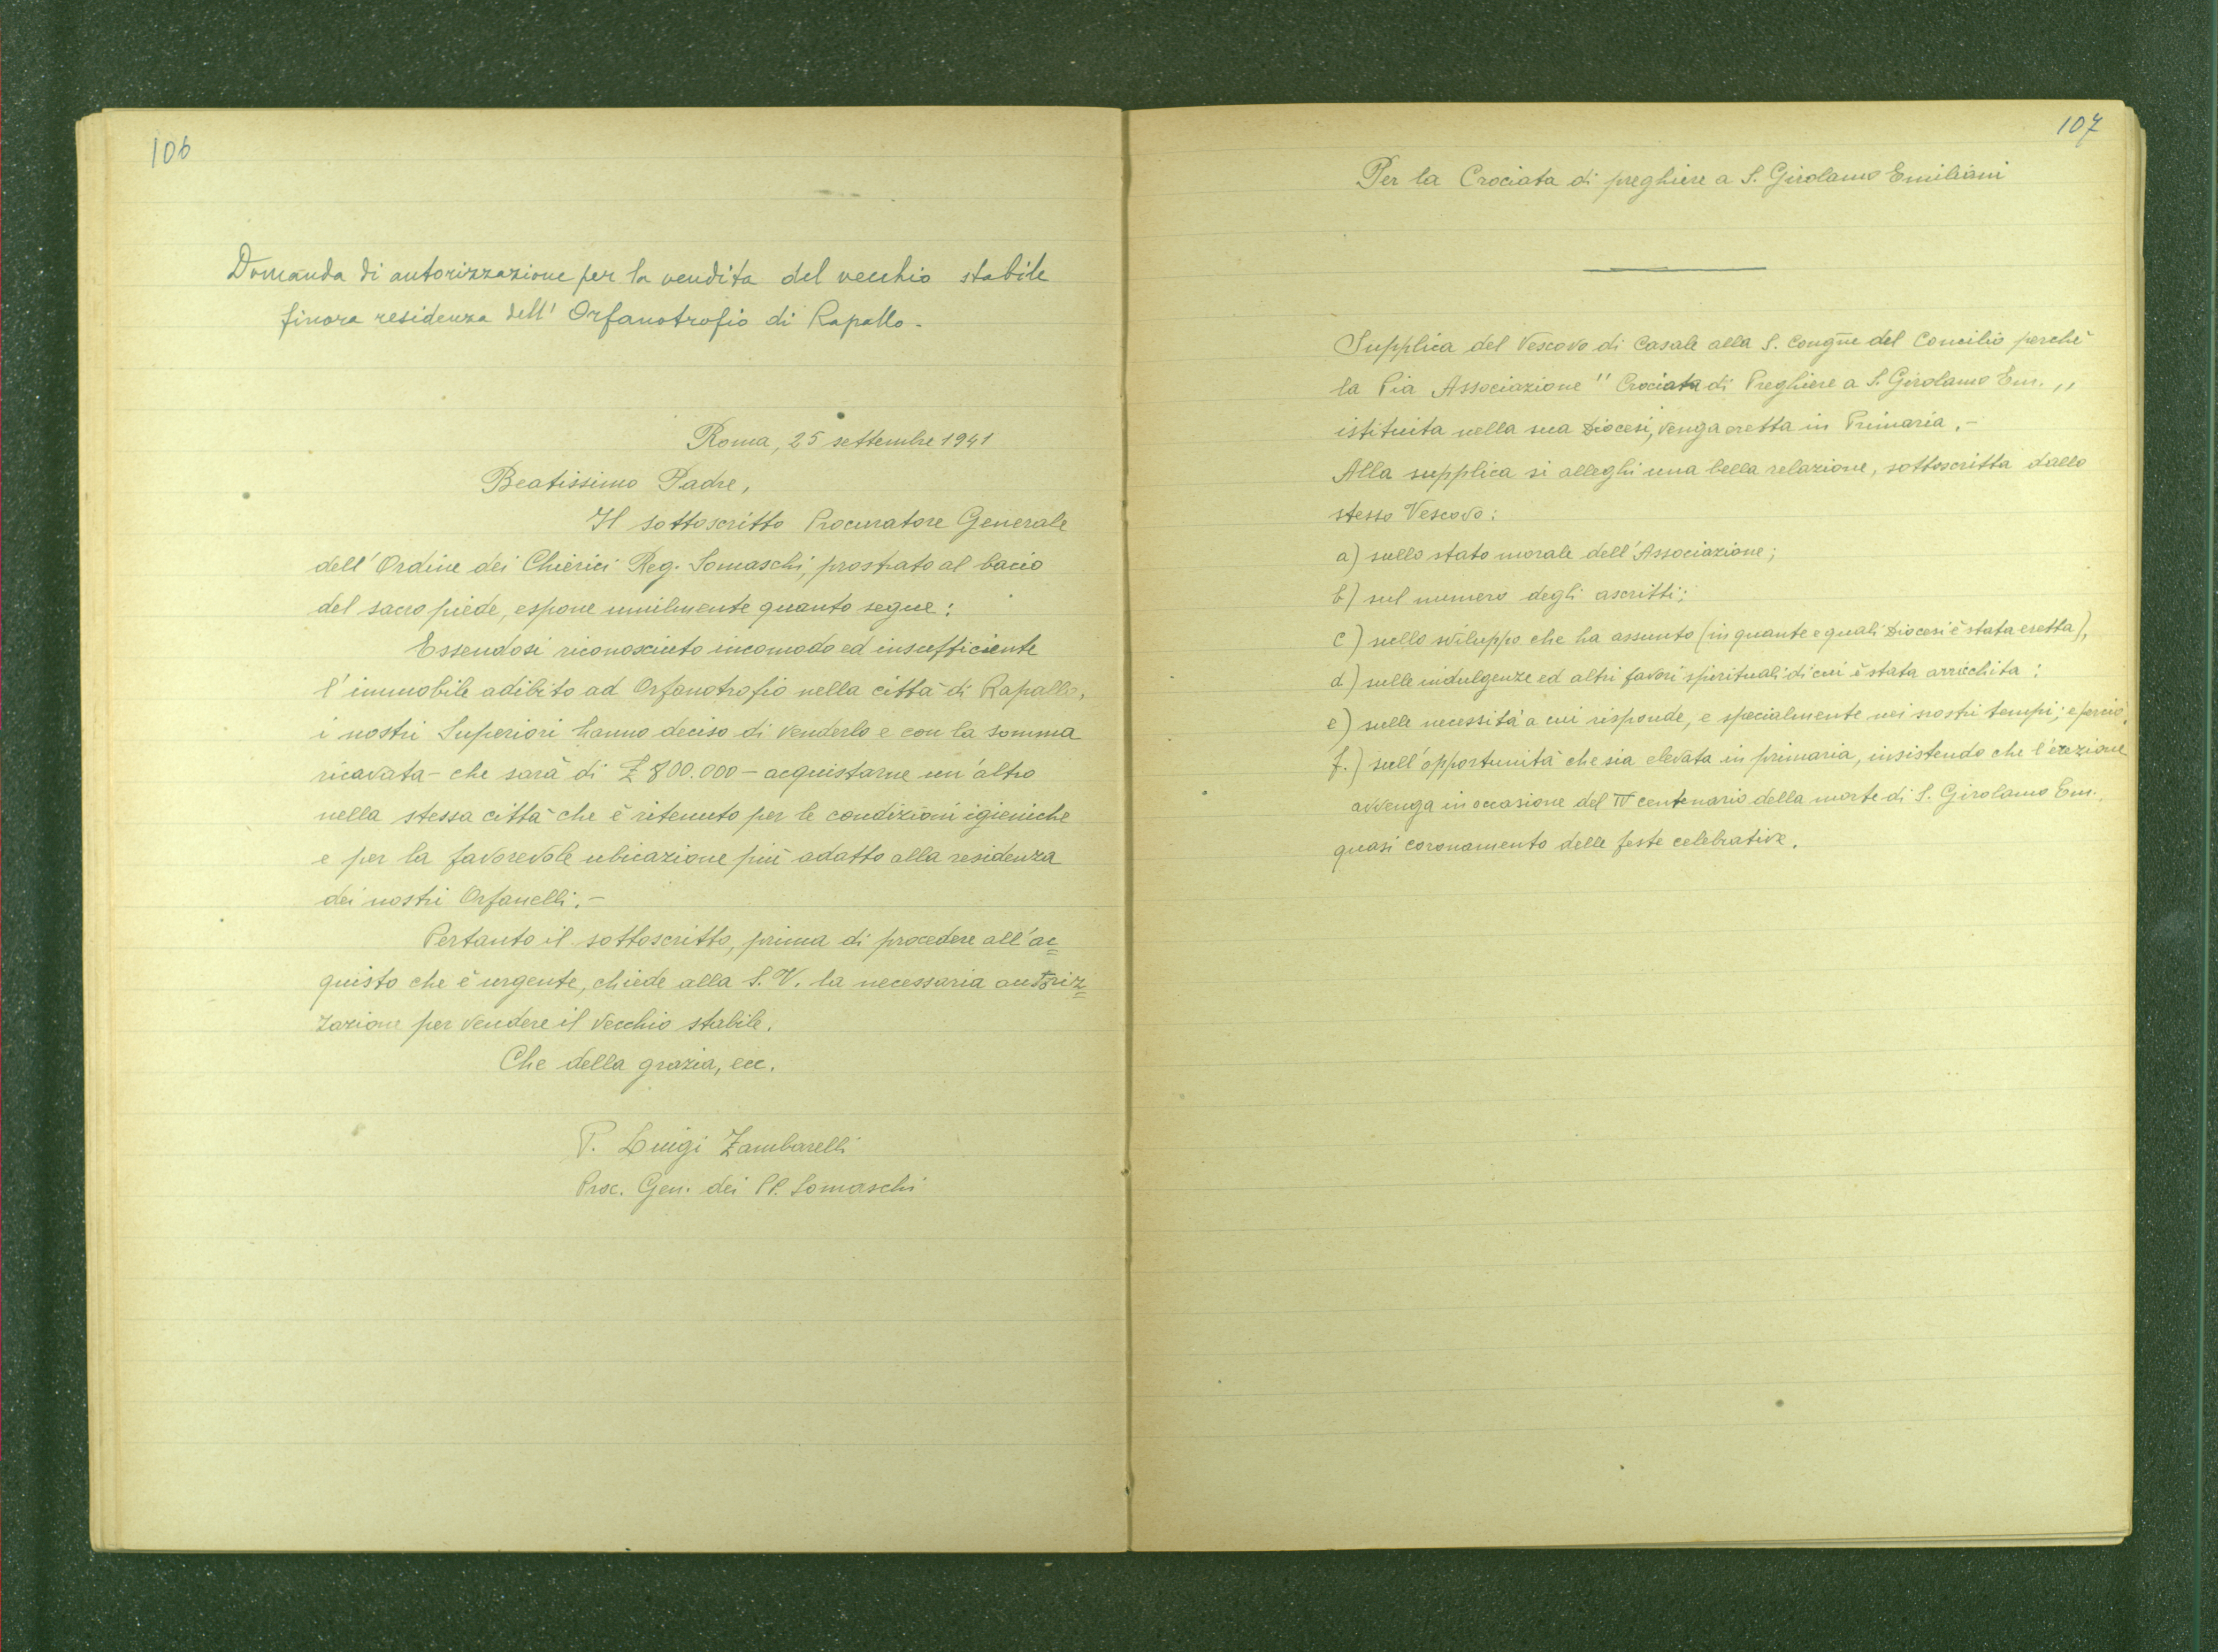 106
Domanda di autorizzazione per la vendita del vecchio stabile
finora residenza dell' Orfanotrofio di Rapallo.
Roma, 25 settembre 1941
Beatissimo Padre,
Il sottoscritto Procuratore Generale
dell'Ordine dei Chierici Reg. Somaschi, prostrato al bacio
del sacro piede, espone umilmente quanto segue:
Essendosi riconosciuto incomodo ed insufficiente
l'immobile adibito ad Orfanotrofio nella città di Rapallo,
i nostri Superiori hanno deciso di venderlo e con la somma
ricavata - che sarà di £ 800.000 - acquistarne un'altro
nella stessa città che è ritenuto per le condizioni igieniche
e per la favorevole ubicazione più adatto alla residenza
dei nostri Orfanelli. -
Pertanto il sottoscritto, prima di procedere all'ac=
quisto che è urgente, chiede alla S.V. la necessaria autoriz=
zazione per vendere il vecchio stabile.
Che della grazia, ecc.
P. Luigi Zambarelli
Proc. Gen. dei PP. Somaschi
107
Per la Crociata di preghiere a S. Girolamo Emiliani
Supplica del Vescovo di Casale alla S. Congne del Concilio perchè
la Pia Associazione "Crociata di Preghiere a S. Girolamo Em.,,
istituita nella sua Diocesi, venga eretta in Primaria. -
Alla supplica si alleghi una bella relazione, sottoscritta dallo
stesso Vescovo:
a) sullo stato morale dell'Associazione;
b) sul numero degli ascritti;
c) sullo sviluppo che ha assunto (in quante e quali Diocesi è stata eretta),
d) sulle indulgenze ed altri favori spirituali di cui è stata arricchita:
e) sulle necessità a cui risponde, e specialmente nei nostri tempi; e perciò,
f.) sull'opportunità che sia elevata in primaria, insistendo che l'erezione
avvenga in occasione del IV centenario della morte di S. Girolamo Em.,
quasi coronamento delle feste celebrative.